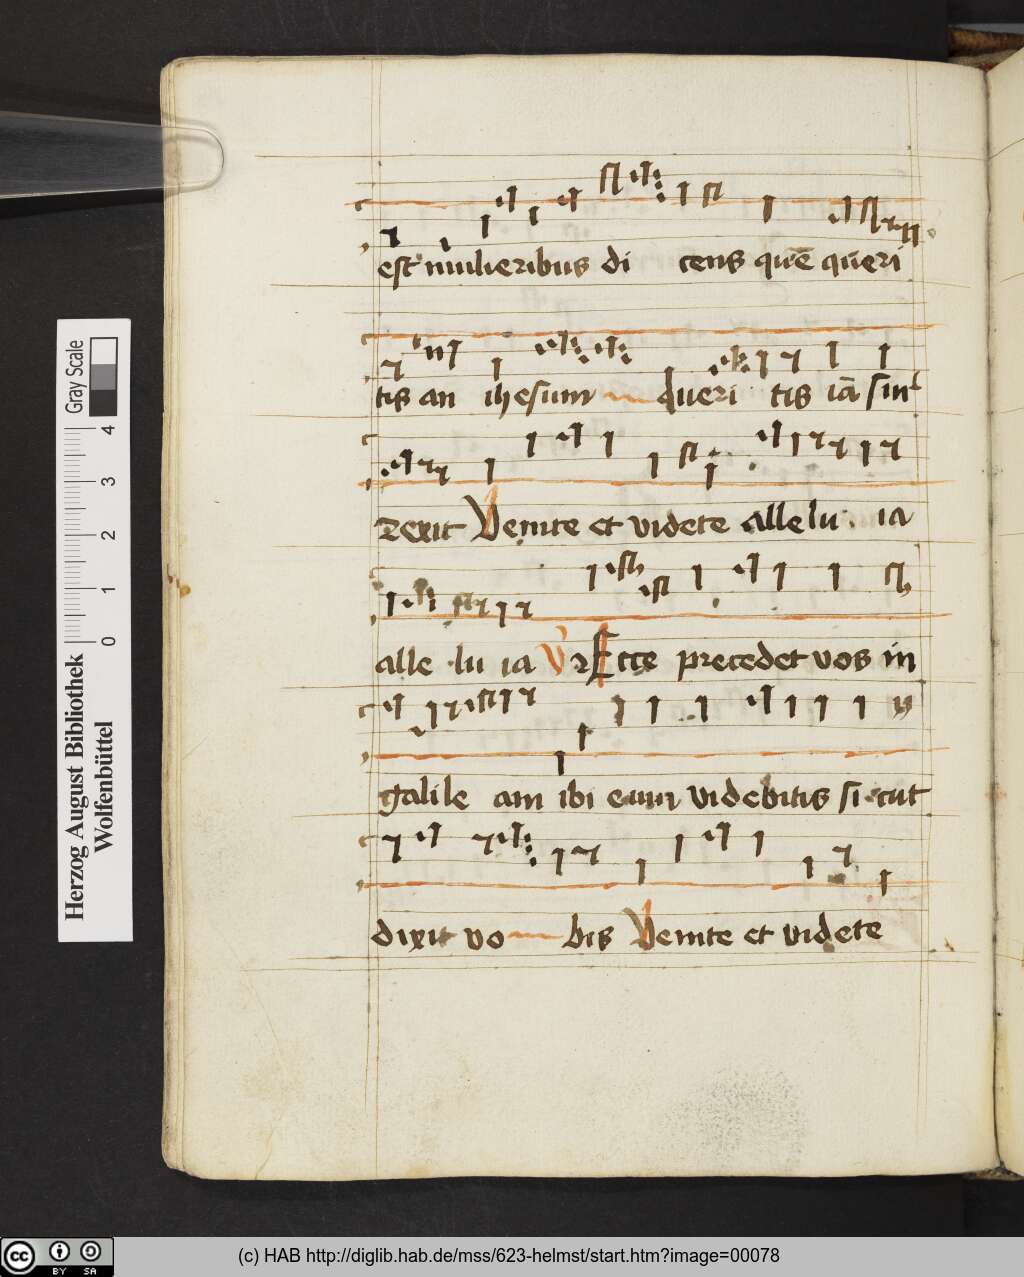 est mulieribus di cens quē queri
tis an ihesum queri tis iā sur
rexit Venite et videte allelu ia
alle lu ia Vr Ecce precedet vos in
galile am ibi eum videbitis sicut
dixit vo bis Venite et videte
Gray Scale
4
3
2
1
0
Herzog August Bibliothek
Wolfenbüttel
cc BY SA
(c) HAB http://diglib.hab.de/mss/623-helmst/start.htm?image=00078